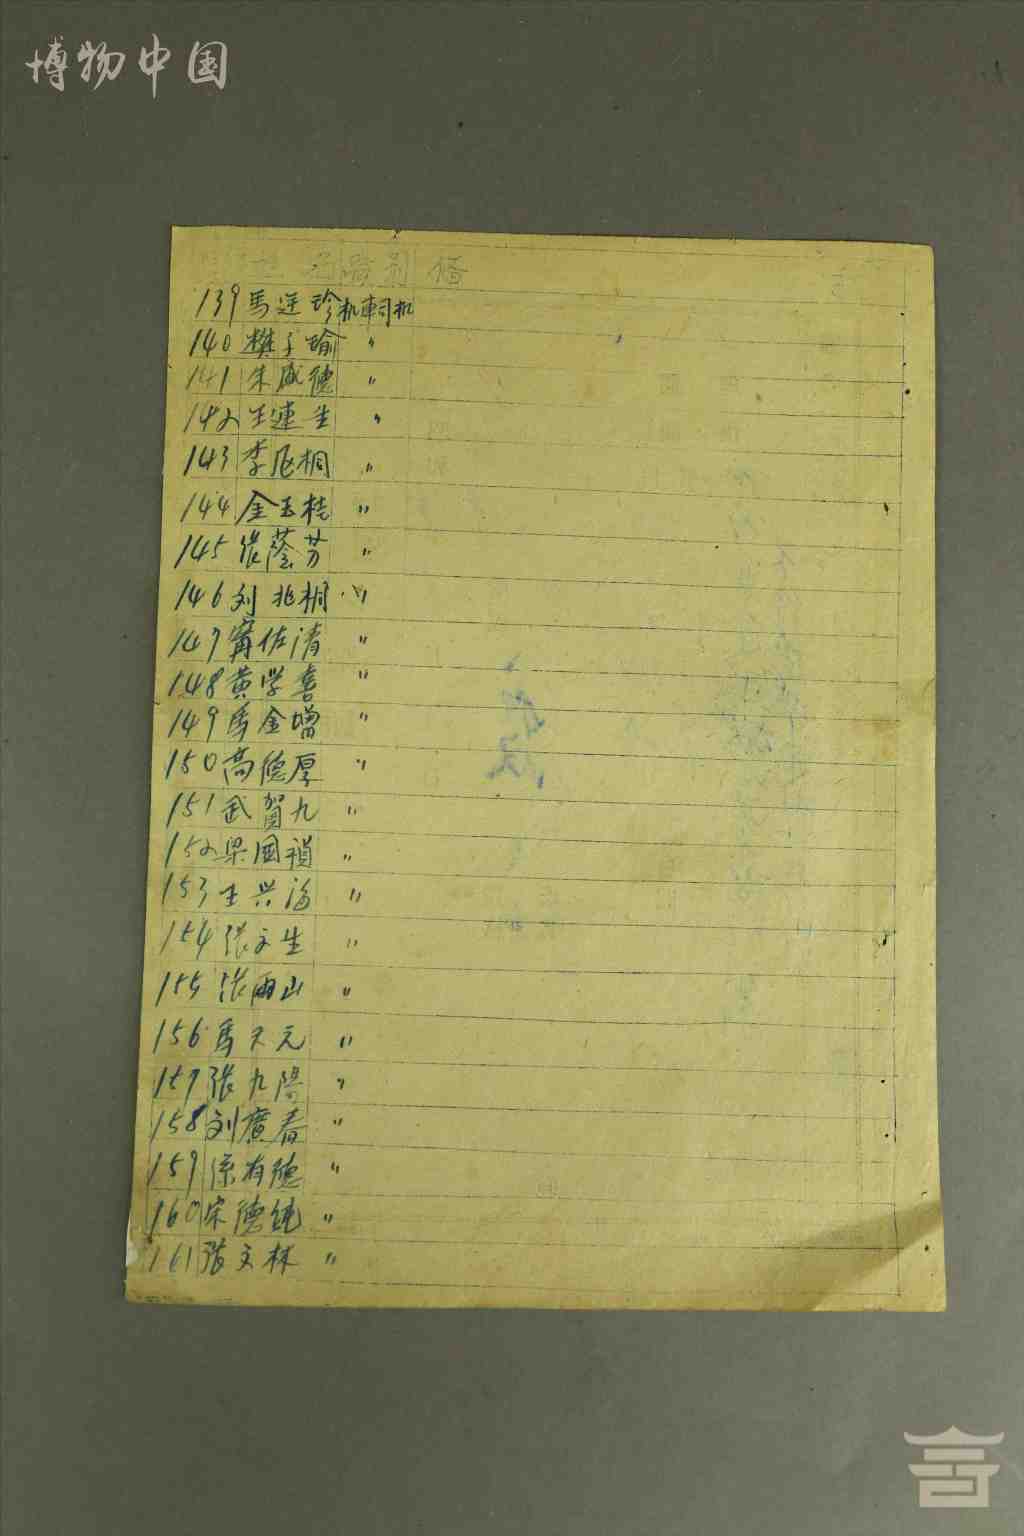 博物中国
姓名 职别 备
139 馬廷珍 机車司机
140 樊子瑜 〃
141 朱咸德 〃
142 王連生 〃
143 李凤桐 〃
144 金玉桂 〃
145 张蔭芳 〃
146 刘兆桐 〃
147 甯佐清 〃
148 黄学喜 〃
149 馬金增 〃
150 高德厚 〃
151 武賀九 〃
152 梁国禎 〃
153 王兴海 〃
154 张文生 〃
155 张雨山 〃
156 馬天元 〃
157 张九陽 〃
158 刘廣春 〃
159 孫有德 〃
160 宋德純 〃
161 張文林 〃